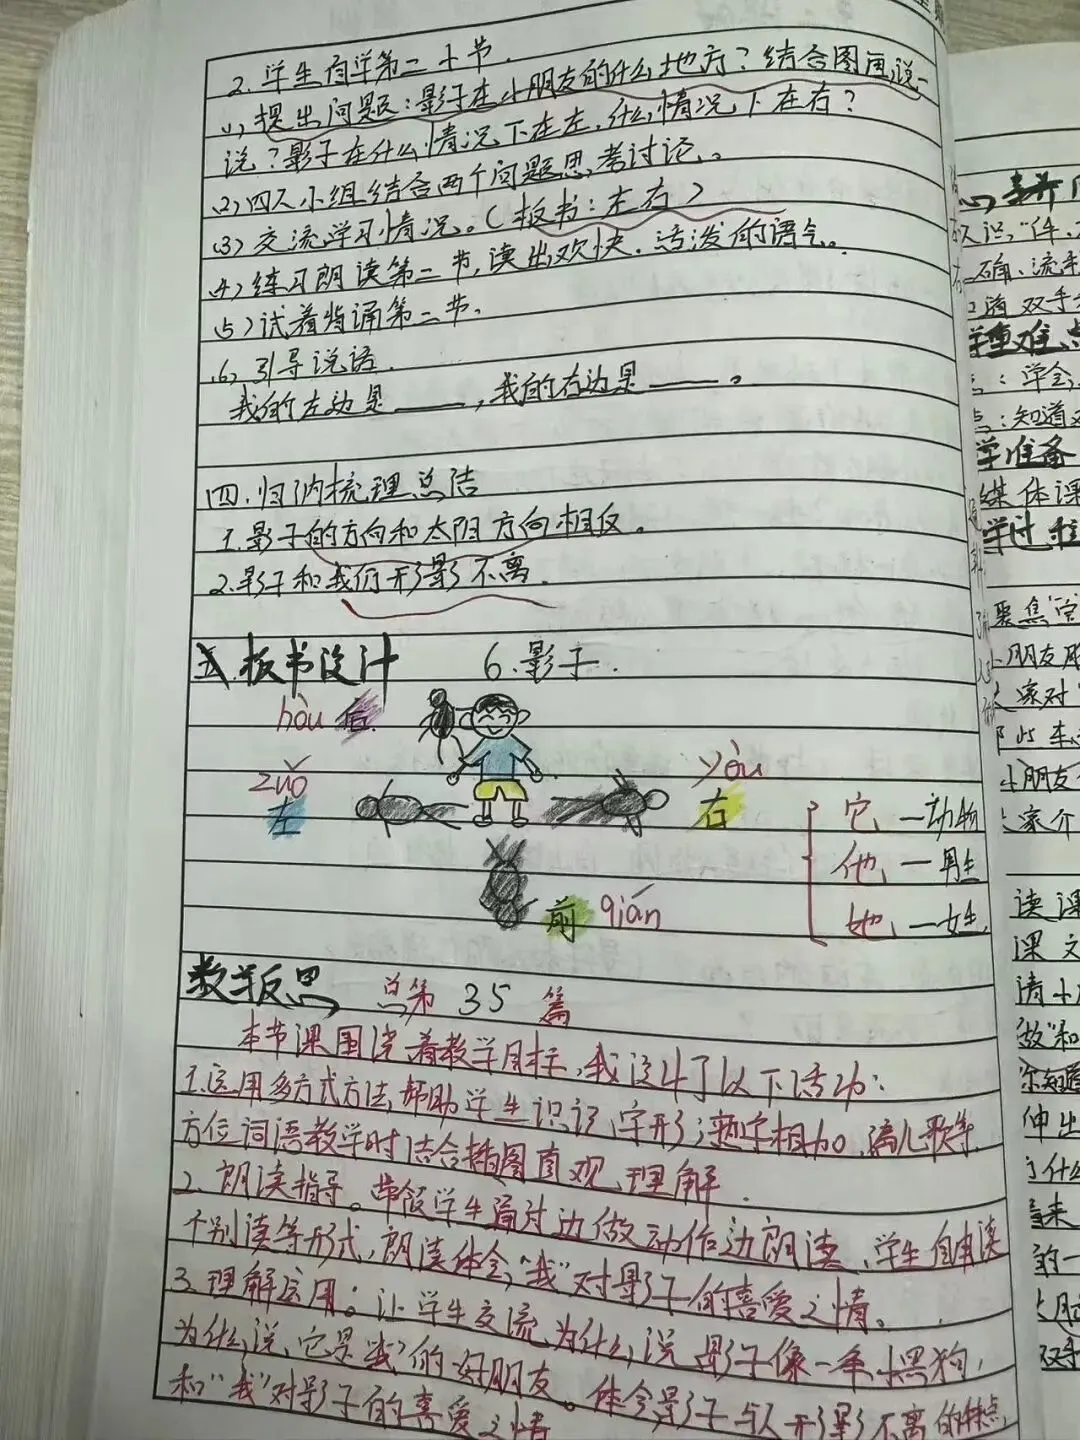 2. 学生自学第二小节.
(1) 提出问题：影子在小朋友的什么地方？结合图画说一
说？影子在什么情况下在左，什么情况下在右？
(2) 四人小组结合两个问题思考讨论。
(3) 交流学习情况。（板书：左右）
(4) 练习朗读第二节，读出欢快、活泼的语气。
(5) 试着背诵第二节。
(6) 引导说话.
我的左边是____，我的右边是____。
四.归纳梳理总结
1.影子的方向和太阳方向相反。
2.影子和我们形影不离.
五、板书设计 6.影子.
hòu 后
zuǒ
左
yòu
右
前 qián
它 一动物
他 一男生
她 一女生
教学反思 总第 35 篇
本节课围绕着教学目标，我设计了以下活动：
1.运用多方式方法，帮助学生识记字形，熟字相加、编儿歌等,
方位词语教学时结合插图直观理解.
2.朗读指导。带领学生通过边做动作边朗读、学生自由读
个别读等形式，朗读体会，"我"对影子的喜爱之情。
3.理解运用。让学生交流为什么说影子像一条小黑狗，
为什么说、它是"我"的好朋友。体会影子与人形影不离的特点,
和"我"对影子的喜爱之情
学重难点
学准备
媒体课
学过程
读课
课文
请小
做"和
你知道
伸出